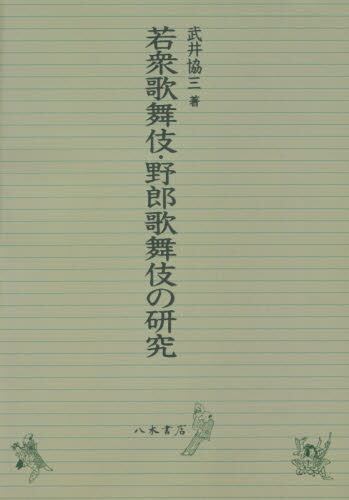 武井協三 著
若衆歌舞伎・野郎歌舞伎の研究
八木書店